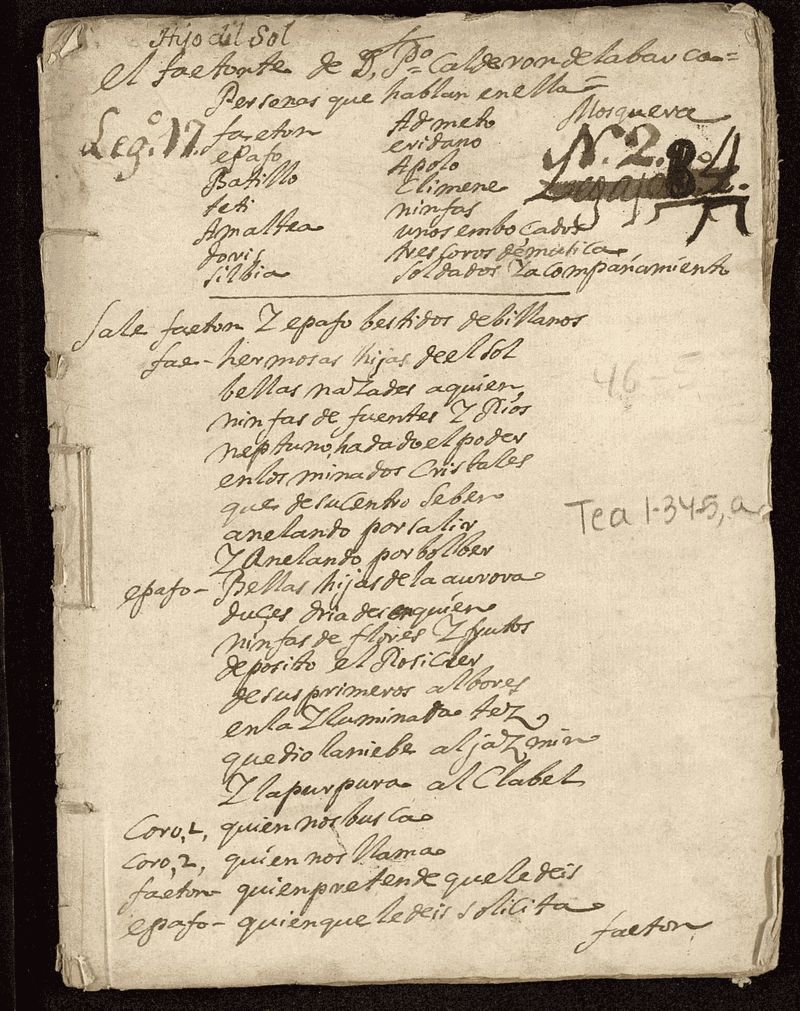 Hijo del Sol
el faetonte de D, Po Calderon de la barca =
Personas que hablan en ella =
Mosquera
Lego. 17.
N. 2.
faeton
epafo
Batillo
teti
Amaltea
doris
silbia
Admeto
eridano
Apolo
Climene
ninfas
unos embocados
tres coros de musica
soldados Y acompañamiento
Sale faeton Y epafo bestidos de billanos
fae - hermosas hijas de el sol
bellas naYades a quien,
ninfas de fuentes Y Rios
neptuno, ha dado el poder
en los minados Cristales
que de su centro se ben
anelando por salir
Y Anelando por bolber
epafo - Bellas hijas de la aurora
dulces driades en quien
ninfas de flores Y frutos
deposito el Rosicler
de sus primeros albores
en la Yluminada tez
que dio la niebe al jazmin
Y la purpura al Clabel
Coro, 1, quien nos busca
Coro, 2, quien nos llama
faeton - quien pretende que le deis
epafo - quien que le deis solicita
faeton
46
Tea 1-34-5, a